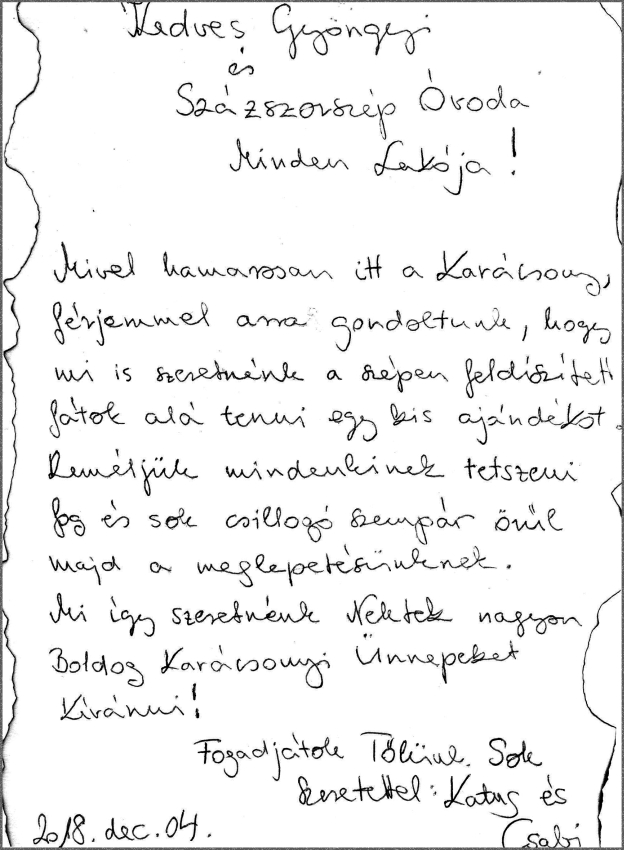 Kedves Gyöngyi
és
Százszorszép Óvoda
Minden Lakója!
Mivel hamarosan itt a Karácsony,
férjemmel arra gondoltunk, hogy
mi is szeretnénk a szépen feldíszített
fátok alá tenni egy kis ajándékot.
Reméljük mindenkinek tetszeni
fog és sok csillogó szempár örül
majd a meglepetésünknek.
Mi így szeretnénk Nektek nagyon
Boldog Karácsonyi Ünnepeket
Kívánni!
Fogadjátok Tőlünk. Sok
Szeretettel: Katus és
Csabi
2018. dec. 04.